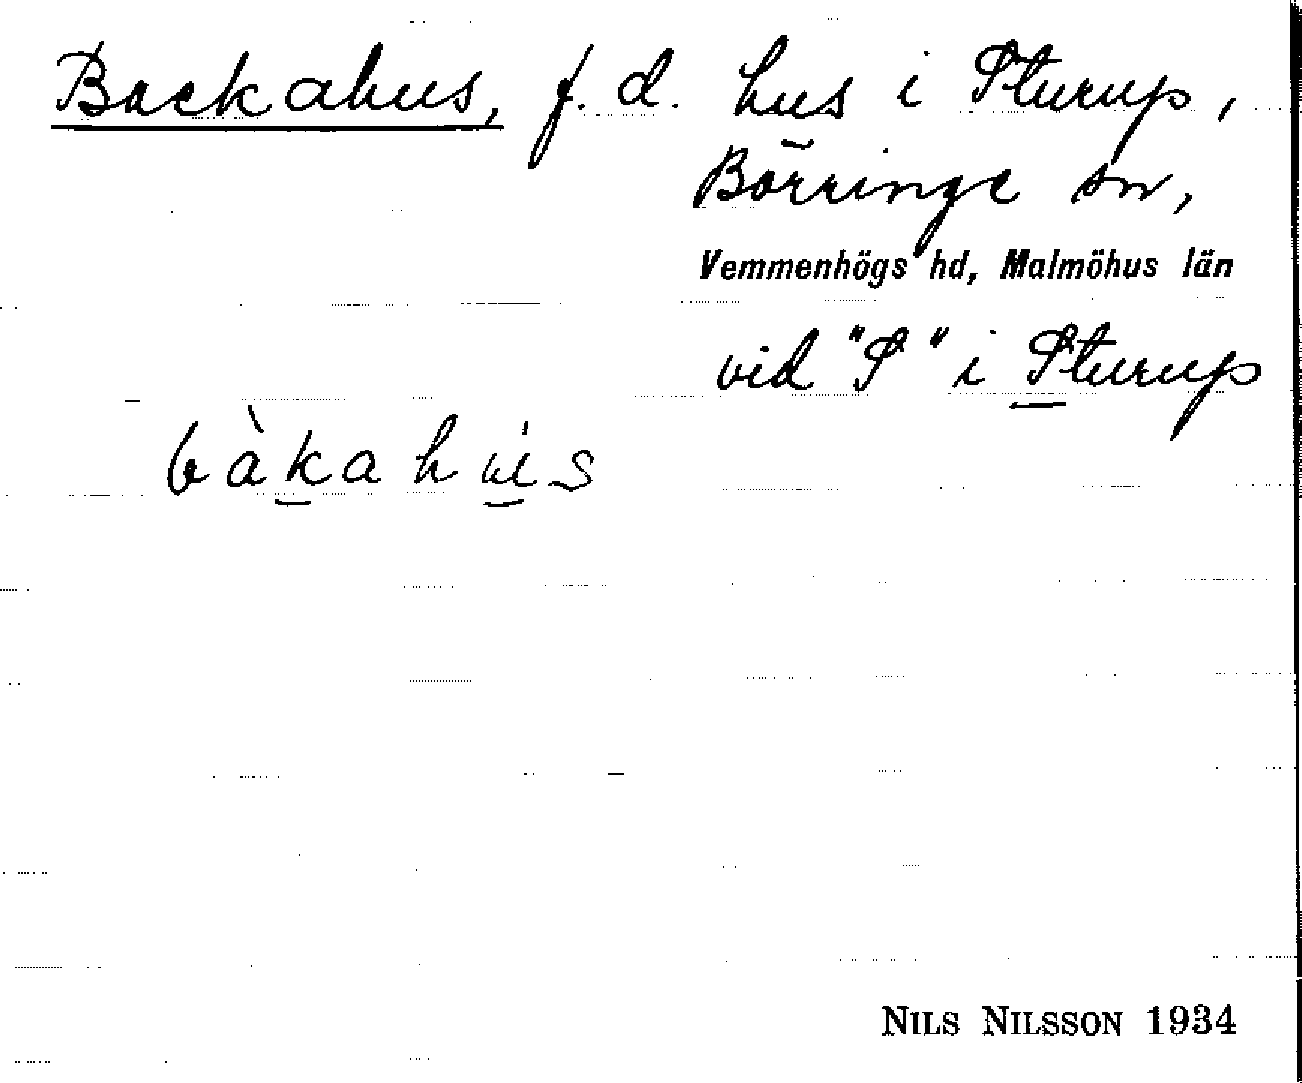 Backahus, f. d. hus i Sturup,
Börringe sn,
Vemmenhögs hd, Malmöhus län
vid "S" i Sturup
bàkahús
NILS NILSSON 1934